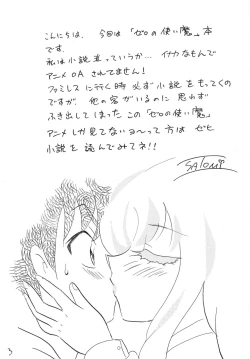 こんにちは、今回は「ゼロの使い魔」本
です。
私は小説派っていうか… イナカなもんで
アニメOAされてません!
ファミレスに行く時必ず小説をもってくの
ですが、他の客がいるのに思わず
ふき出してしまったこの「ゼロの使い魔」
アニメしか見てないヨ〜って方はゼヒ
小説を読んでみてネ!!
SATOMI
3